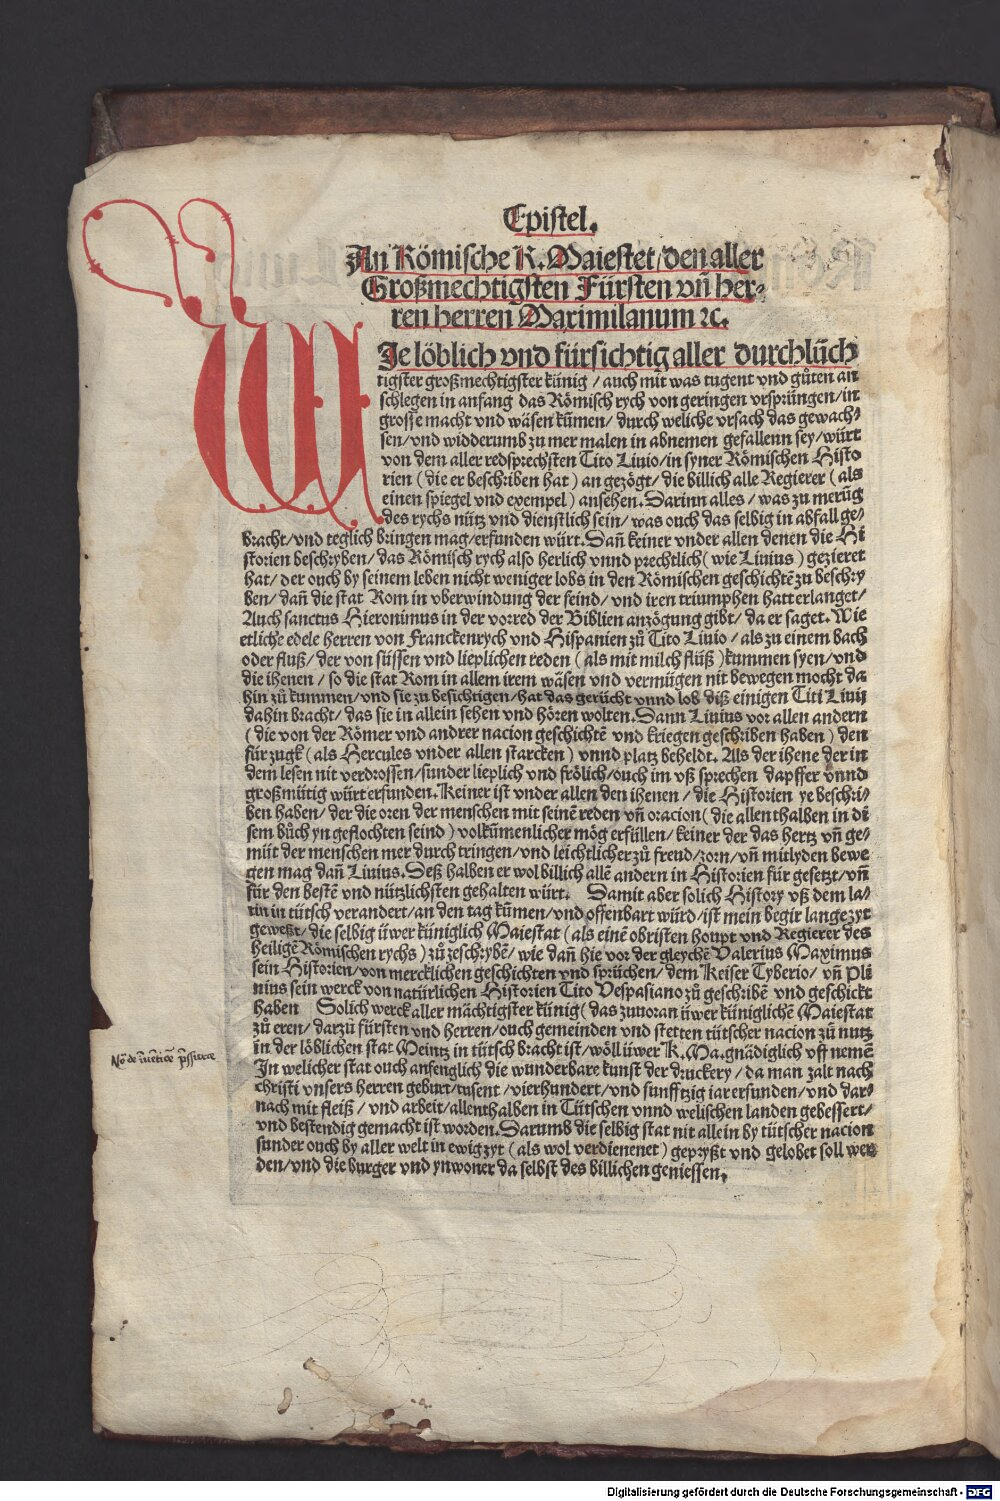 Epistel.
An Römische K. Maiestet/den aller
Großmechtigsten Fürsten vñ her⸗
ren herren Maximilanum ⁊c.
WIe löblich vnd fürsichtig aller durchlüch
tigster großmechtigster künig / auch mit was tugent vnd gůten an
schlegen in anfang das Römisch rych von geringen vrsprüngen/in
grosse macht vnd wäsen kūmen / durch weliche vrsach das gewach⸗
sen/vnd widderumb zu mer malen in abnemen gefallenn sey/würt
von dem aller redsprechsten Tito Liuio/in syner Römischen Histo
rien (die er beschriben hat) an gezögt/die billich alle Regierer (als
einen spiegel vnd exempel) ansehen. Darinn alles / was zu merūg
des rychs nütz vnd dienstlich sein/ was ouch das selbig in abfall ge⸗
bracht/vnd teglich bringen mag/erfunden würt. Dañ keiner vnder allen denen die Hi
storien beschryben/das Römisch rych also herlich vnnd prechtlich (wie Liuius) gezieret
hat/ der ouch by seinem leben nicht weniger lobs in den Römischen geschichtē zu beschry
ben/ dañ die stat Rom in vberwindung der feind/ vnd iren triumphen hatt erlanget/
Auch sanctus Hieronimus in der vorred der Biblien anzögung gibt/ da er saget. Wie
etliche edele herren von Franckenrych vnd Hispanien zů Tito Liuio / als zu einem bach
oder fluß/ der von süssen vnd lieplichen reden (als mit milch flüß) kummen syen/vnd
die ihenen / so die stat Rom in allem irem wäsen vnd vermügen nit bewegen mocht da
hin zů kummen/vnd sie zu besichtigen/hat das gerücht vnnd lob diß einigen Titi Liuij
dahin bracht/ das sie in allein sehen vnd hören wolten. Dann Liuius vor allen andern
(die von der Römer vnd andrer nacion geschichtē vnd kriegen geschriben haben) den
für zugk (als Hercules vnder allen starcken) vnnd platz beheldt. Als der ihene der in
dem lesen nit verdrossen/sunder lieplich vnd frölich/ouch im vß sprechen dapffer vnnd
großmütig würt erfunden. Keiner ist vnder allen den ihenen / die Historien ye beschri⸗
ben haben/ der die oren der menschen mit seinē reden vñ oracion (die allenthalben in di⸗
sem bůch yn geflochten seind) volkūmenlicher mög erfüllen/ keiner der das hertz vñ ge⸗
müt der menschen mer durch tringen/vnd leichtlicher zů freud/zorn/vñ mitlyden bewe
gen mag dañ Liuius. Deß halben er wol billich allē andern in Historien für gesetzt/vñ
für den bestē vnd nützlichsten gehalten würt. Damit aber solich History vß dem la⸗
tin in tütsch verandert/an den tag kūmen/vnd offenbart würd/ist mein begir lange zyt
geweßt/ die selbig üwer küniglich Maiestat (als einē obristen houpt vnd Regierer des
heiligē Römischen rychs) zů zeschrybē/ wie dañ hie vor der gleychē Valerius Maximus
sein Historien/von mercklichen geschichten vnd sprüchen/dem Keiser Tyberio/ vñ Pli⸗
nius sein werck von natürlichen Historien Tito Vespasiano zů geschribē vnd geschickt
haben Solich werck aller mächtigster künig (das zuuoran üwer küniglichē Maiestat
zů eren/ darzů fürsten vnd herren/ouch gemeinden vnd stetten tütscher nacion zů nutz
in der löblichen stat Meintz in tütsch bracht ist/wöll üwer K. Ma. gnädiglich vff nemē
In welicher stat ouch anfenglich die wunderbare kunst der druckery/ da man zalt nach
christi vnsers herren geburt/tusent /vierhundert/vnd funfftzig iar erfunden/vnd dar⸗
nach mit fleiß / vnd arbeit/allenthalben in Tütschen vnnd welischen landen gebessert/
vnd bestendig gemacht ist worden. Darumb die selbig stat nit allein by tütscher nacion
sunder ouch by aller welt in ewig zyt (als wol verdienenet) geprÿßt vnd gelobet soll wer
den/vnd die burger vnd ynwoner da selbst des billichen geniessen.
Digitalisierung gefördert durch die Deutsche Forschungsgemeinschaft - DFG